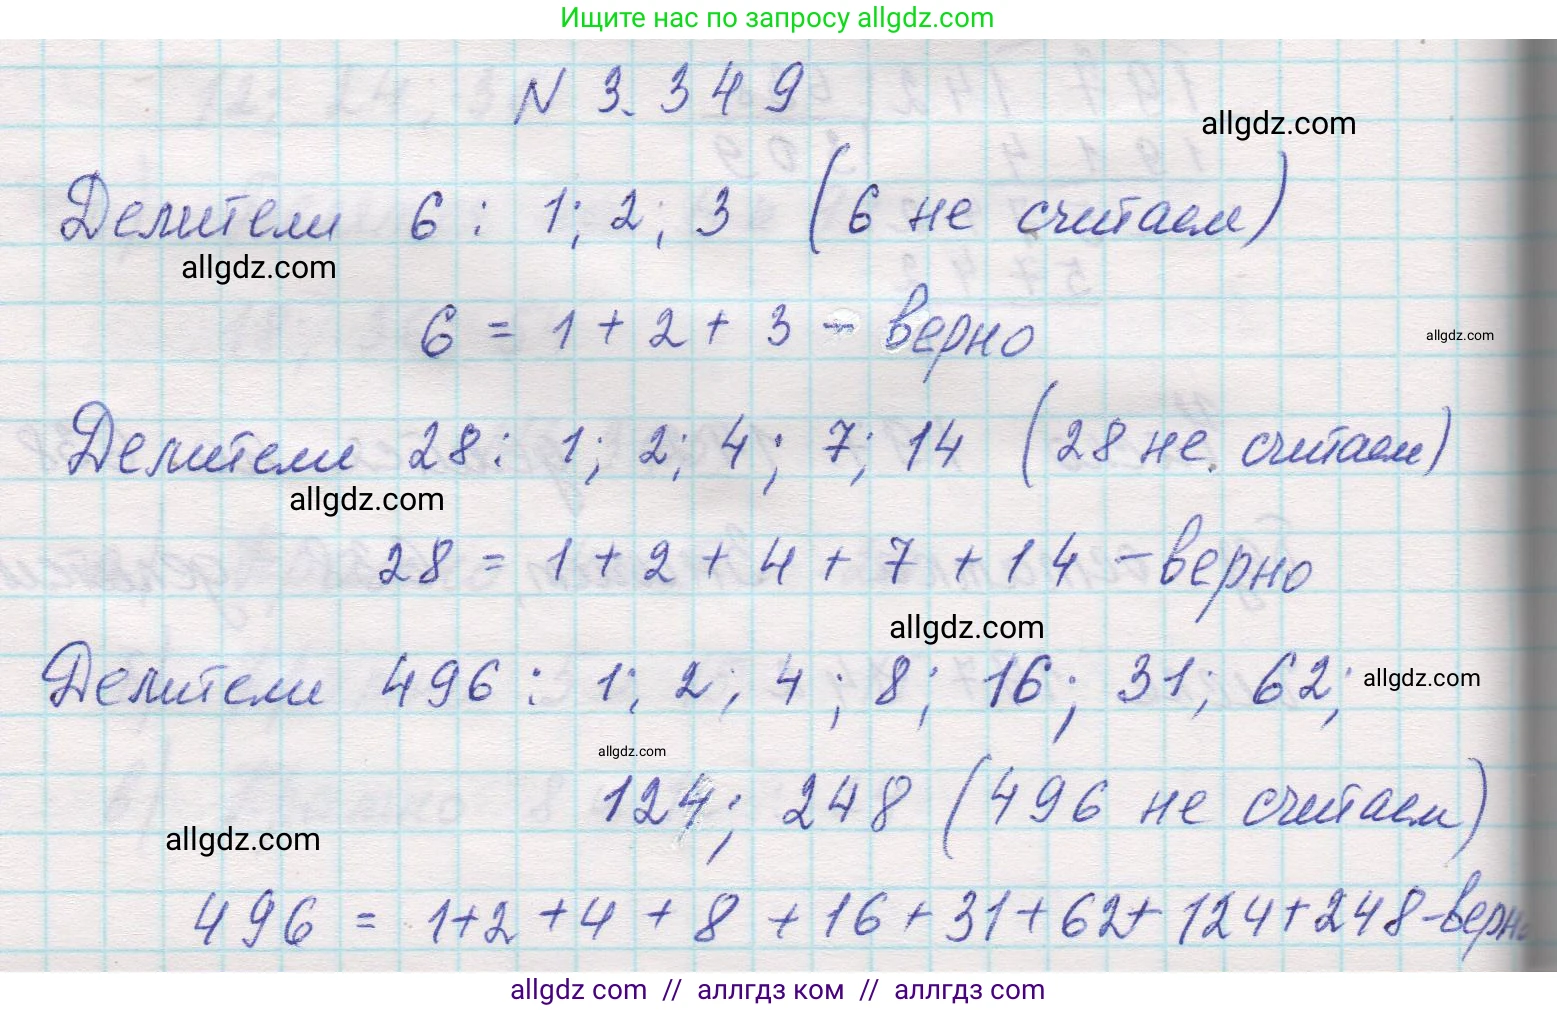 Ищите нас по запросу allgdz.com
N 3.349
allgdz.com
Делители 6 : 1; 2; 3 (6 не считаем)
allgdz.com
6 = 1 + 2 + 3 - верно
allgdz.com
Делители 28: 1; 2; 4; 7; 14 (28 не считаем)
allgdz.com
28 = 1 + 2 + 4 + 7 + 14 - верно
allgdz.com
Делители 496 : 1; 2; 4; 8; 16; 31; 62;
allgdz.com
allgdz.com
124; 248 (496 не считаем)
allgdz.com
496 = 1+2+4+8+16+31+62+124+248-верно
allgdz com // аллгдз ком // аллгдз com